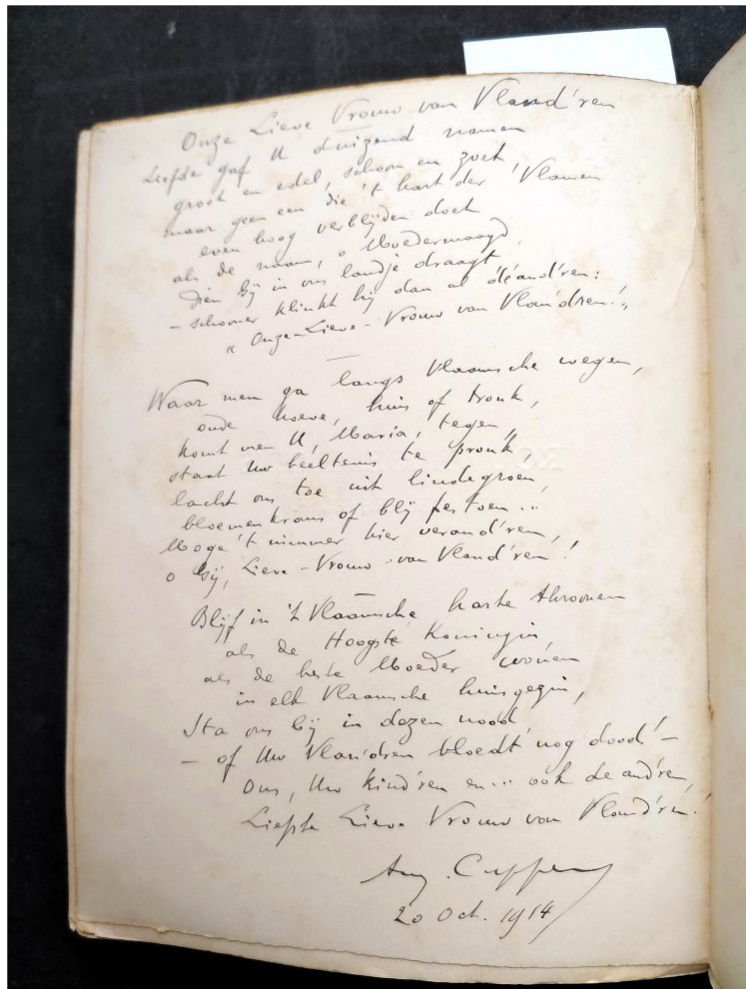 Onze Lieve Vrouw van Vland'ren
Liefde gaf U duizend namen
groot en edel, schoon en zoet,
maar geen een die 't hart der Vlamen
even hoog verblijden doet
als de naam, o Moedermaagd,
dien Gij in ons landje draagt,
- schooner klinkt hij dan al de and'ren:
"Onze-Lieve-Vrouw van Vlan'dren!"
Waar men ga langs Vlaamsche wegen,
oude hoeve, huis of tronk,
komt men U, Maria, tegen,
staat Uw beeltenis te pronk,
lacht ons toe uit lindegroen,
bloemenkrans of blij festoen...
Moge 't nimmer hier verand'ren,
o Gij, Lieve-Vrouw van Vland'ren!
Blijf in 't Vlaamsche harte throonen
als de Hoogste Koningin,
als de beste Moeder wonen
in elk Vlaamsche huisgezin,
Sta ons bij in dezen nood
- of Uw Vlan'dren bloedt nog dood! -
Ons, Uw kind'ren en... ook de and're,
Liefste Lieve Vrouw van Vland'ren!
Aug. Cuppens
20 Oct. 1914